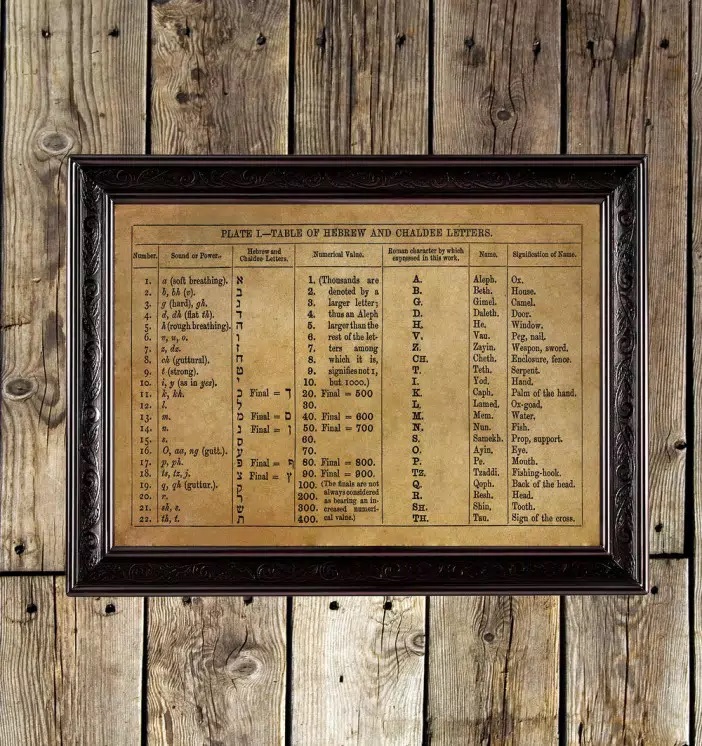 PLATE I.—TABLE OF HEBREW AND CHALDEE LETTERS.
Number. Sound or Power. Hebrew and Chaldee Letters. Numerical Value. Roman character by which expressed in this work. Name. Signification of Name.
1. a (soft breathing). א 1. (Thousands are A. Aleph. Ox.
2. b, bh (v). ב 2. denoted by a B. Beth. House.
3. g (hard), gh. ג 3. larger letter; G. Gimel. Camel.
4. d, dh (flat th). ד 4. thus an Aleph D. Daleth. Door.
5. h (rough breathing). ה 5. larger than the H. He. Window.
6. v, u, o. ו 6. rest of the let- V. Vau. Peg, nail.
7. z, dz. ז 7. ters among Z. Zayin. Weapon, sword.
8. ch (guttural). ח 8. which it is, CH. Cheth. Enclosure, fence.
9. t (strong). ט 9. signifies not 1, T. Teth. Serpent.
10. i, y (as in yes). י 10. but 1000.) I. Yod. Hand.
11. k, kh. כ Final = ך 20. Final = 500 K. Caph. Palm of the hand.
12. l. ל 30. L. Lamed. Ox-goad.
13. m. מ Final = ם 40. Final = 600 M. Mem. Water.
14. n. נ Final = ן 50. Final = 700 N. Nun. Fish.
15. s. ס 60. S. Samekh. Prop, support.
16. O, aa, ng (gutt.). ע 70. O. Ayin. Eye.
17. p, ph. פ Final = ף 80. Final = 800. P. Pe. Mouth.
18. ts, tz, j. צ Final = ץ 90. Final = 900. TZ. Tzaddi. Fishing-hook.
19. q, qh (guttur.). ק 100. (The finals are not Q. Qoph. Back of the head.
20. r. ר 200. always considered as bearing an in- R. Resh. Head.
21. sh, s. ש 300. creased numeri- SH. Shin. Tooth.
22. th, t. ת 400. cal value.) TH. Tau. Sign of the cross.